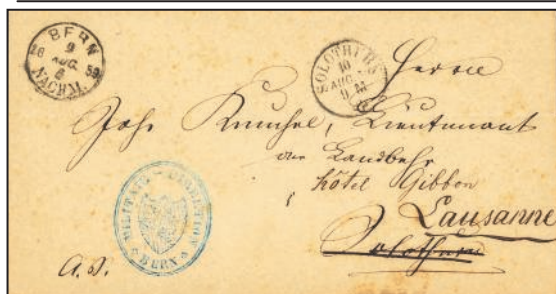 BERN
9
AUG.
6
NACHM.
SOLOTHURN
10
AUG.
Herrn
Joh. Kunchel, Lieutenant
der Landwehr
hôtel Gibbon
Lausanne
Solothurn
MILITAIR-DIRECTION
BERN
A. S.